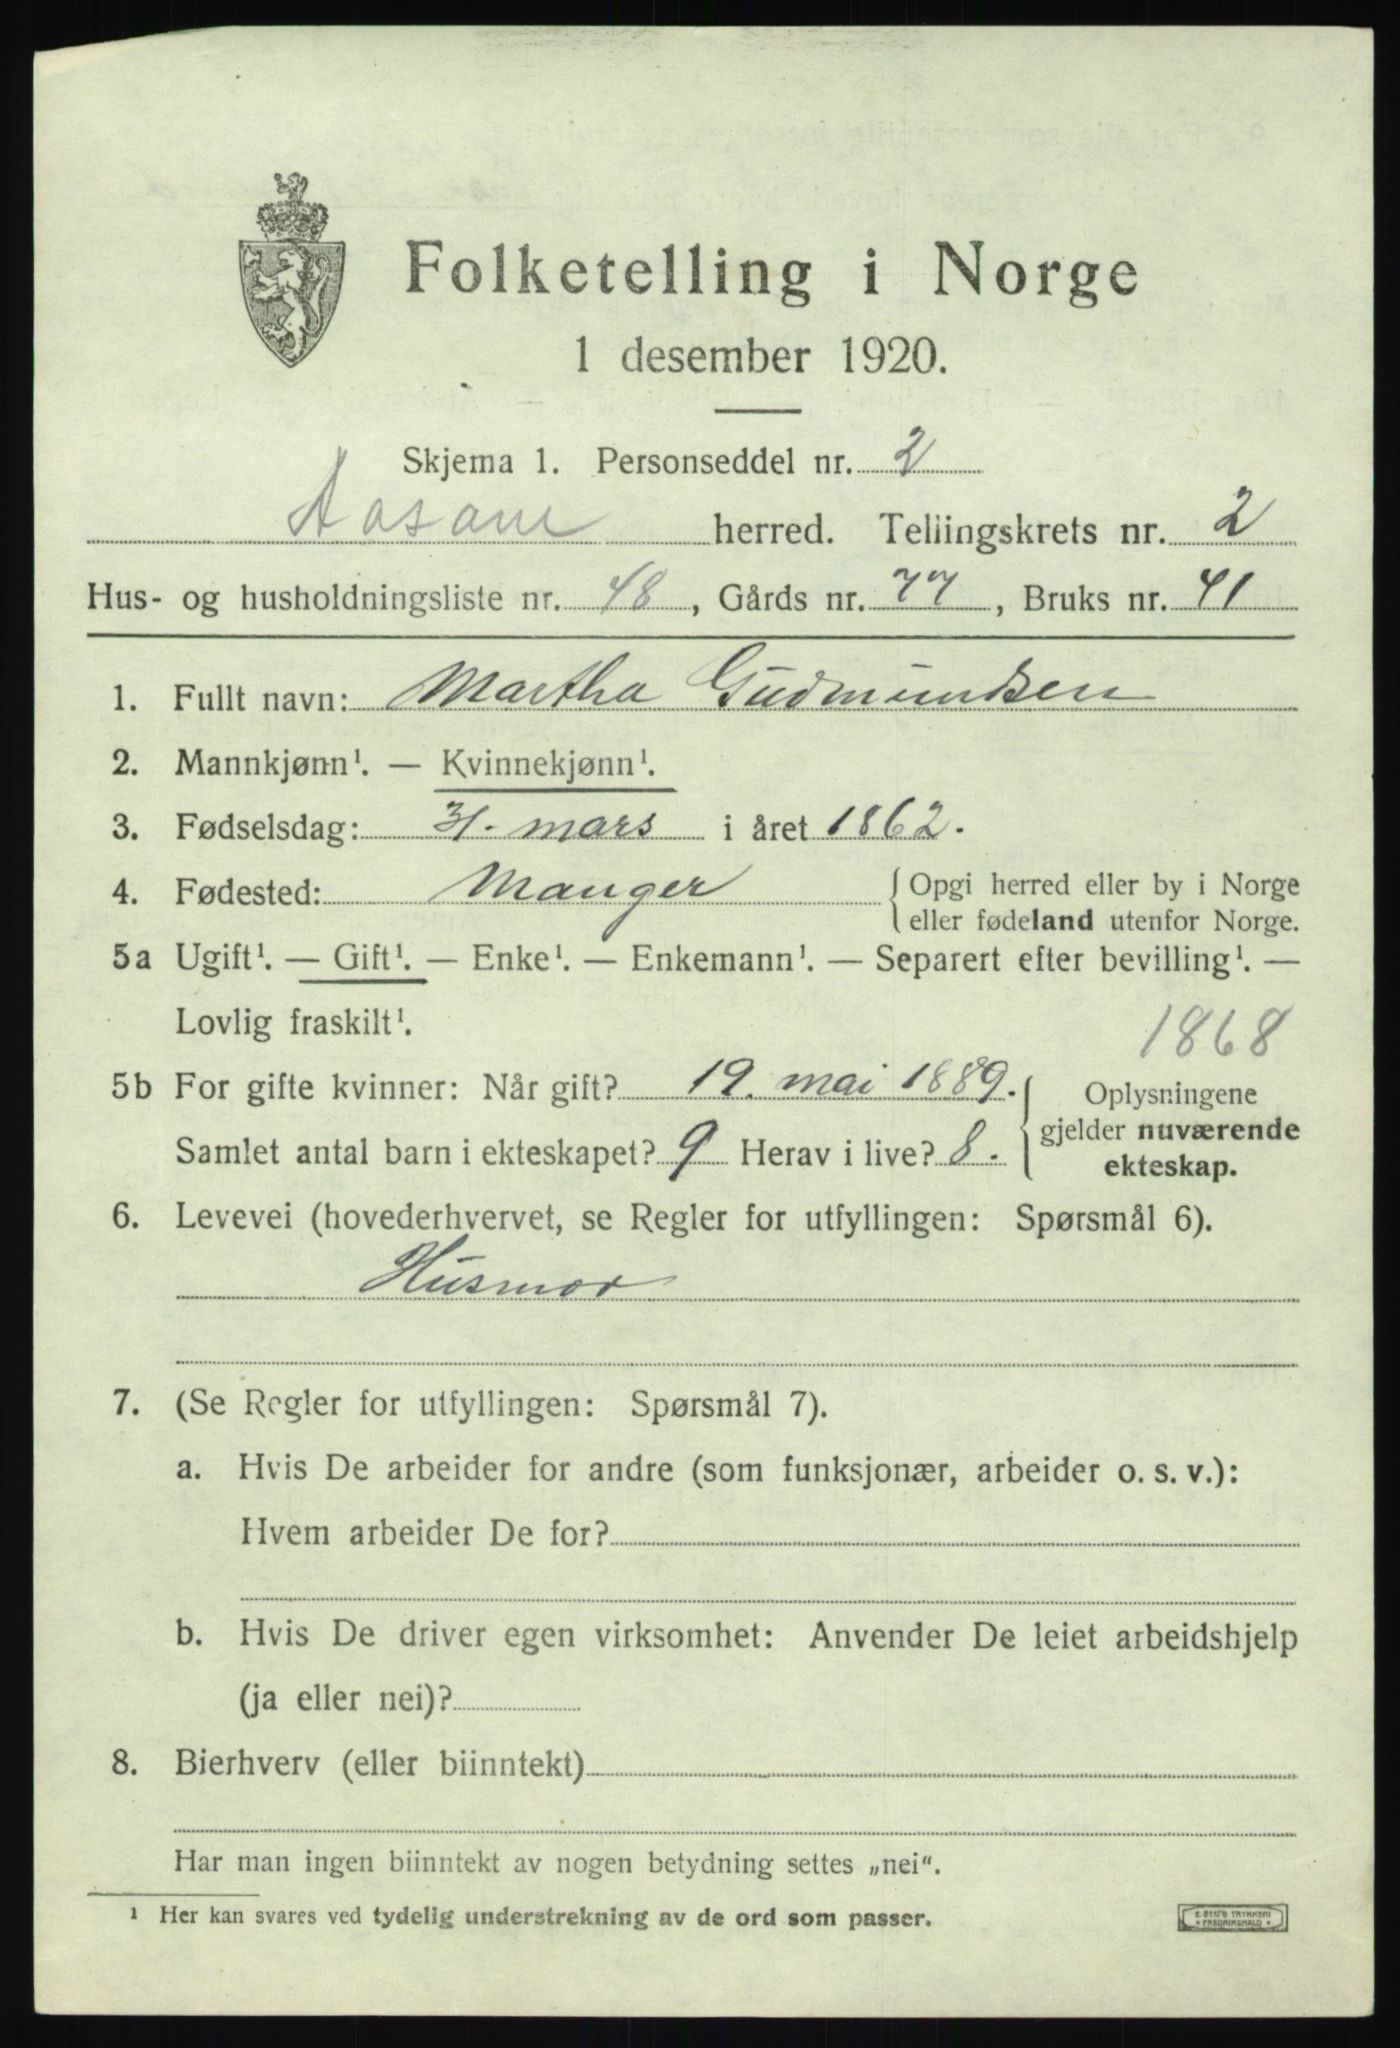 Folketelling i Norge
1 desember 1920.
Skjema 1. Personseddel nr. 2
Aasane herred. Tellingskrets nr. 2
Hus- og husholdningsliste nr. 48, Gårds nr. 77, Bruks nr. 41
1. Fullt navn: Martha Gudmundsen
2. Mannkjønn¹. — Kvinnekjønn¹.
3. Fødselsdag: 31. mars i året 1862.
4. Fødested: Manger {Opgi herred eller by i Norge
eller fødeland utenfor Norge.
5a Ugift¹. — Gift¹. — Enke¹. — Enkemann¹. — Separert efter bevilling¹. —
Lovlig fraskilt¹.
1868
5b For gifte kvinner: Når gift? 19. mai 1889. Oplysningene
gjelder nuværende
Samlet antal barn i ekteskapet? 9 Herav i live? 8. ekteskap.
6. Levevei (hovederhvervet, se Regler for utfyllingen: Spørsmål 6).
Husmor
7. (Se Regler for utfyllingen: Spørsmål 7).
a. Hvis De arbeider for andre (som funksjonær, arbeider o. s. v.):
Hvem arbeider De for?
b. Hvis De driver egen virksomhet: Anvender De leiet arbeidshjelp
(ja eller nei)?
8. Bierhverv (eller biinntekt)
Har man ingen biinntekt av nogen betydning settes „nei".
¹ Her kan svares ved tydelig understrekning av de ord som passer.
E. SEM'S TRYKKERI
FREDRIKSHALD